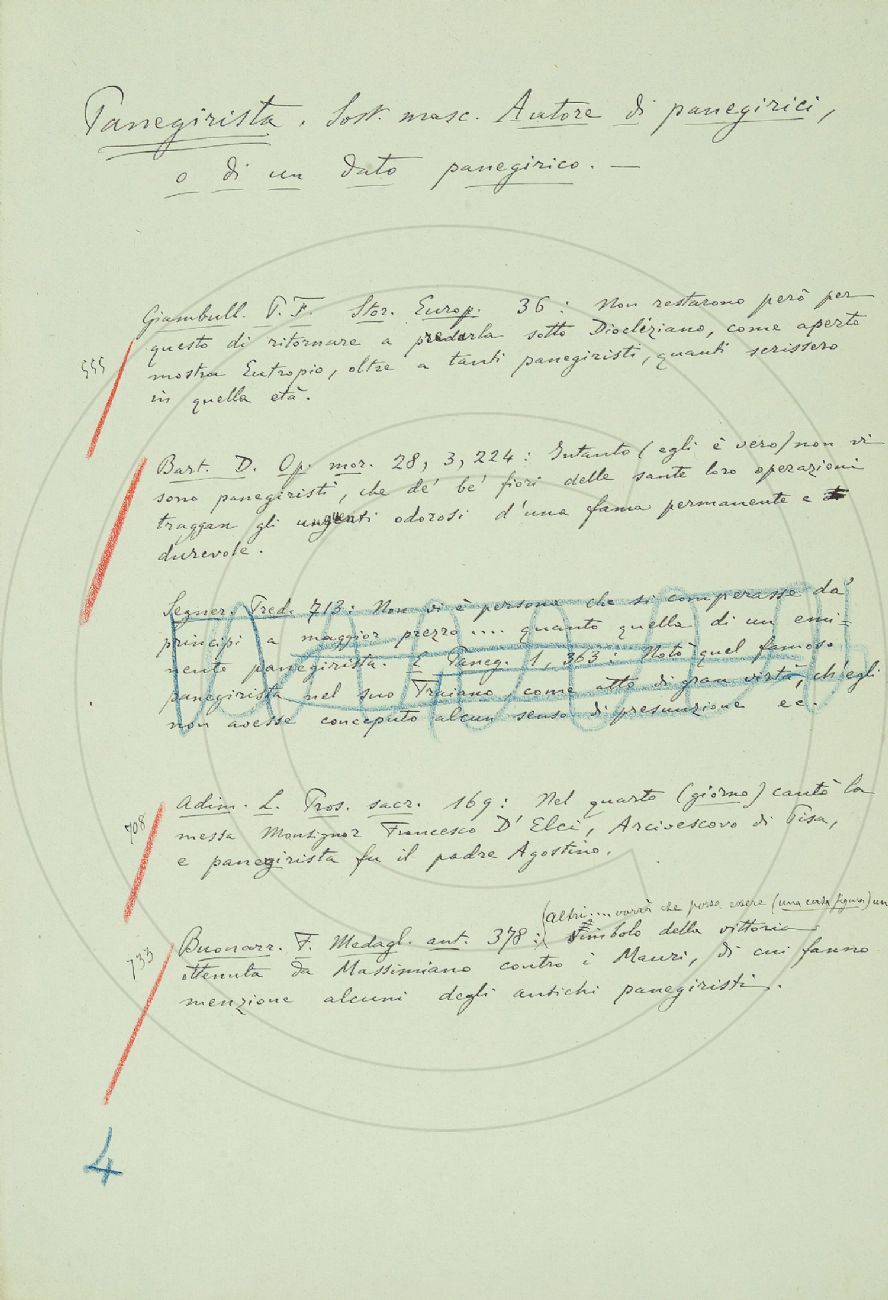 Panegirista. Sost. masc. Autore di panegirici,
o di un dato panegirico. —
Giambull. P. F. Stor. Europ. 36: Non restarono però per
questo di ritornare a predarla sotto Diocleziano, come aperto
555
mostra Eutropio, oltre a tanti panegiristi, quanti scrissero
in quella età.
Bart. D. Op. mor. 28, 3, 224: Intanto (egli è vero) non vi
sono panegiristi, che de' be' fiori delle sante loro operazioni
traggan gli unguenti odorosi d'una fama permanente e
durevole.
Segner. Pred. 713: Non vi è persona che si comperasse da'
principi a maggior prezzo .... quanto quella di un emi=
nente panegirista. E Paneg. 1, 363: Notò quel famoso
panegirista nel suo Traiano, come atto di gran virtù, ch'egli
non avesse conceputo alcun senso di presunzione ec.
Adim. L. Pros. sacr. 169: Nel quarto (giorno) cantò la
708
messa Monsignor Francesco D'Elci, Arcivescovo di Pisa,
e panegirista fu il padre Agostino.
(altri .... vorrà che possa essere (una casa figura) un
Buonarr. F. Medagl. ant. 378: simbolo della vittoria
733
ottenuta da Massimiano contro i Mauri, di cui fanno
menzione alcuni degli antichi panegiristi.
4